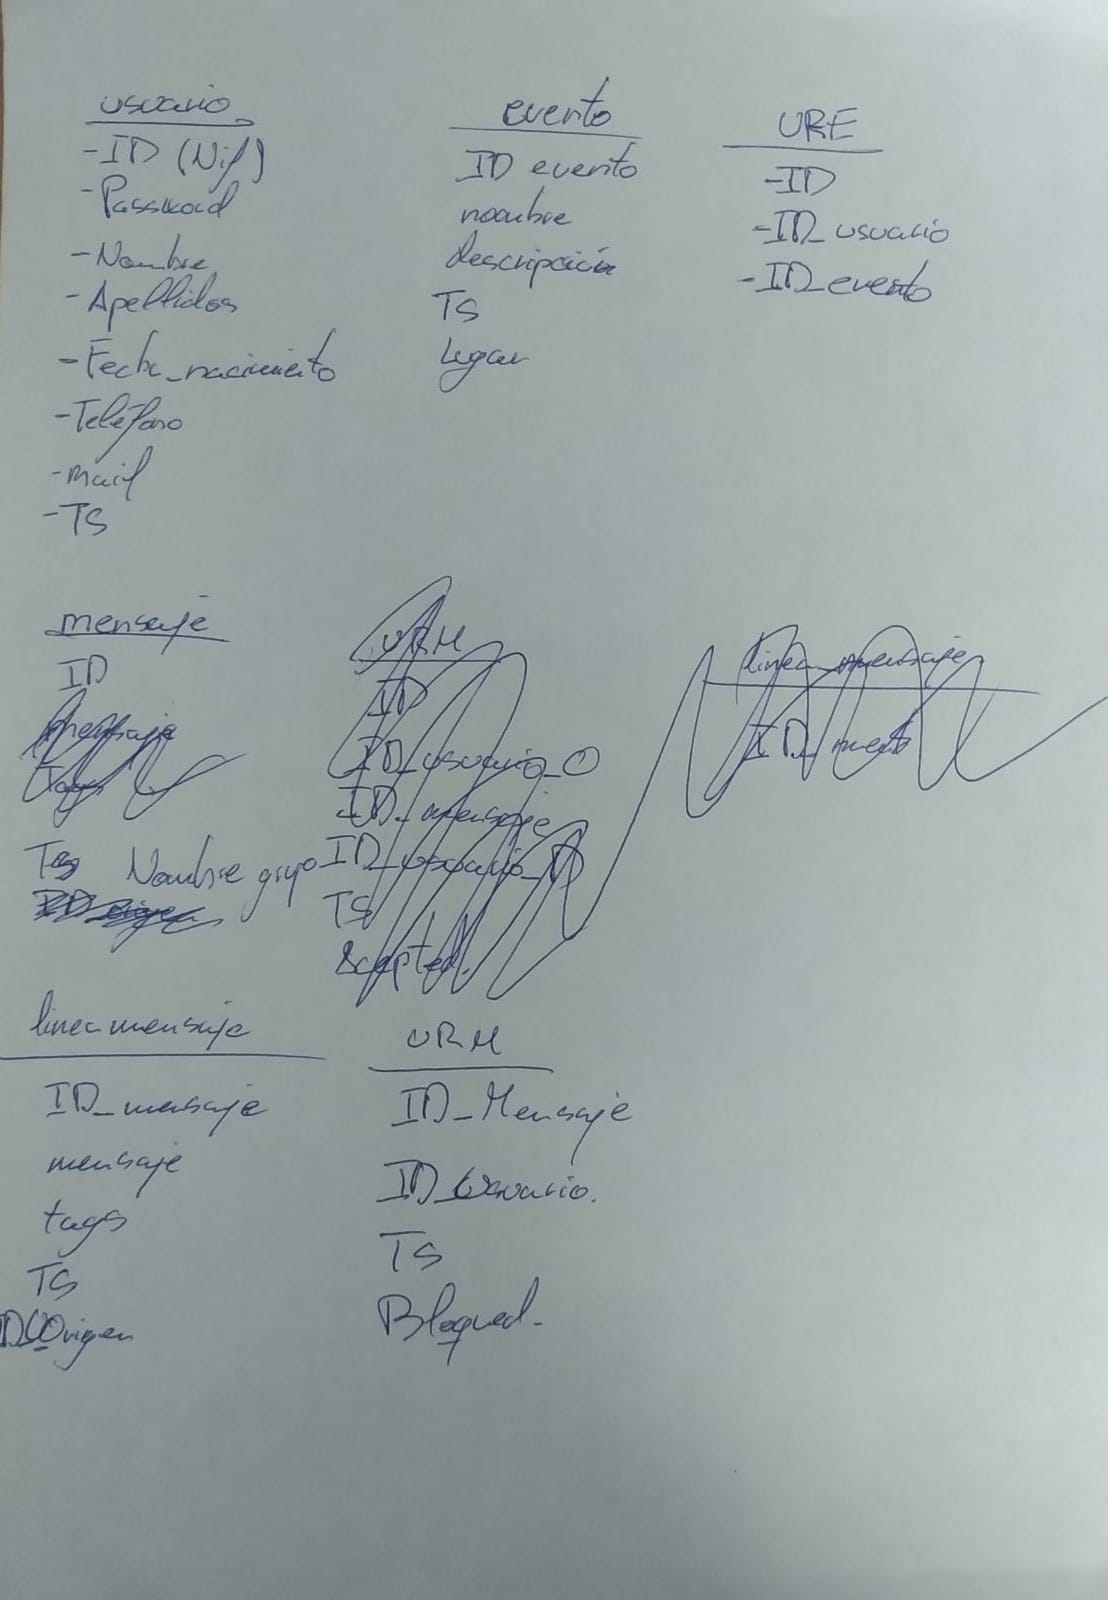 usuario
-ID (Nif)
-Password
-Nombre
-Apellidos
-Fecha_nacimiento
-Teléfono
-mail
-TS
evento
ID evento
nombre
descripción
TS
lugar
URE
-ID
-ID_usuario
-ID_evento
mensaje
ID
mensaje
Tags
TS Nombre grupo
URM
ID
ID_usuario_O
ID_mensaje
ID_usuario_D
TS
linea_mensaje
linea mensaje
ID_mensaje
mensaje
tags
TS
Origen
URM
ID_Mensaje
ID_Usuario.
TS
Bloqued.